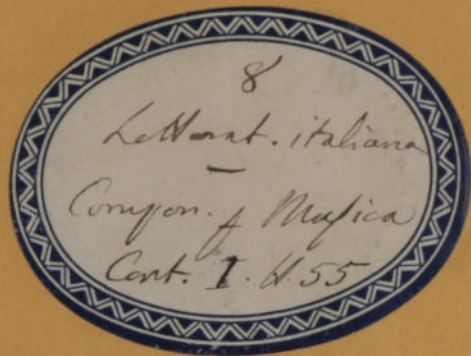 8
Letterat. italiana
—
Compon. p Musica
Cart. I. N. 55